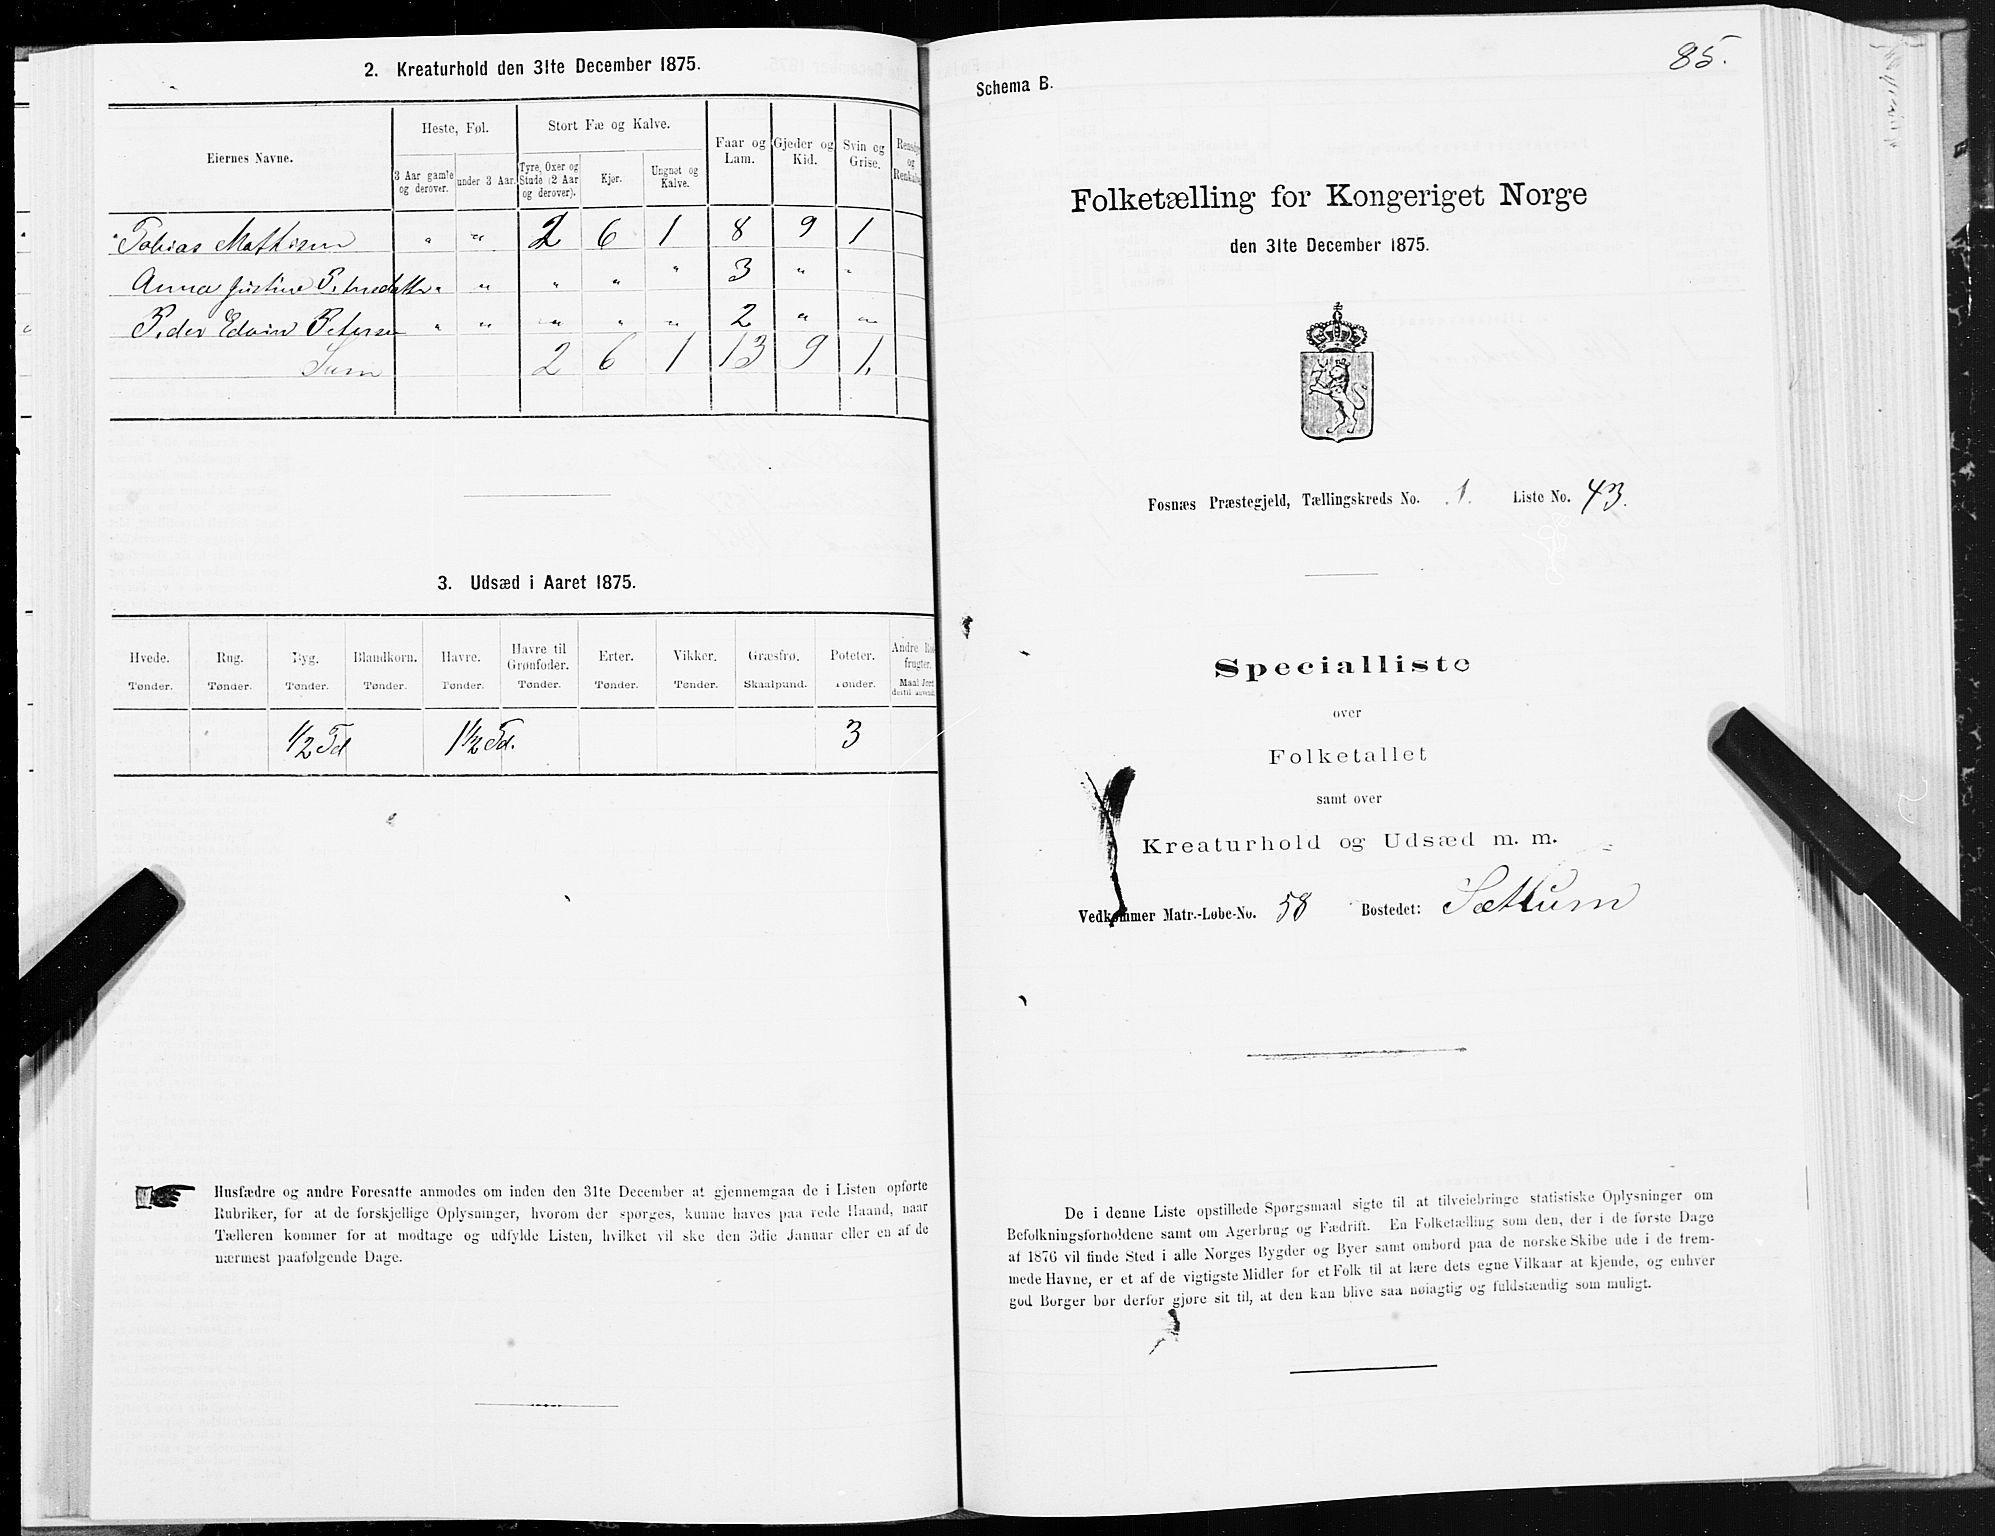 2. Kreaturhold den 31te December 1875.
Eiernes Navne.
Heste, Føl.
Stort Fæ og Kalve.
Faar og Lam.
Gjeder og Kid.
Svin og Grise.
Rensdyr og Renkalve
3 Aar gamle og derover.
under 3 Aar.
Tyre, Oxer og Stude (2 Aar og derover).
Kjør.
Ungnøt og Kalve.
Tobias Mathisen " " 2 6 1 8 9 1
Anna Justine " " " " " 3 " "
Peder Edvin Petersen " " " " " 2 " "
Sum 2 6 1 13 9 1.
3. Udsæd i Aaret 1875.
Hvede. Rug. Byg. Blandkorn. Havre. Havre til Grønfoder. Erter. Vikker. Græsfrø. Poteter. Andre Ro frugter.
Tønder. Tønder. Tønder. Tønder. Tønder. Tønder. Tønder. Tønder. Skaalpund. Tønder. Maal Jord dertil anvend.
1/2 Td 1 1/2 Td. 3
Husfædre og andre Foresatte anmodes om inden den 31te December at gjennemgaa de i Listen opførte
Rubriker, for at de forskjellige Oplysninger, hvorom der spørges, kunne haves paa rede Haand, naar
Tælleren kommer for at modtage og udfylde Listen, hvilket vil ske den 3die Januar eller en af de
nærmest paafølgende Dage.
85.
Schema B.
Folketælling for Kongeriget Norge
den 31te December 1875.
Fosnæs Præstegjeld, Tællingskreds No. 1. Liste No. 43.
Specialliste
over
Folketallet
samt over
Kreaturhold og Udsæd m. m.
Vedkommer Matr.-Løbe-No. 58 Bostedet: Sættum
De i denne Liste opstillede Spørgsmaal sigte til at tilveiebringe statistiske Oplysninger om
Befolkningsforholdene samt om Agerbrug og Fædrift. En Folketælling som den, der i de første Dage
af 1876 vil finde Sted i alle Norges Bygder og Byer samt ombord paa de norske Skibe ude i de frem-
mede Havne, er et af de vigtigste Midler for et Folk til at lære dets egne Vilkaar at kjende, og enhver
god Borger bør derfor gjøre sit til, at den kan blive saa nøiagtig og fuldstændig som muligt.